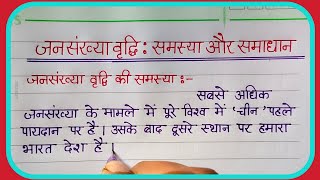 जनसंख्या वृद्धि : समस्या और समाधान
जनसंख्या वृद्धि की समस्या :-
सबसे अधिक
जनसंख्या के मामले में पूरे विश्व में 'चीन' पहले
पायदान पर है । उसके बाद दूसरे स्थान पर हमारा
भारत देश है ।